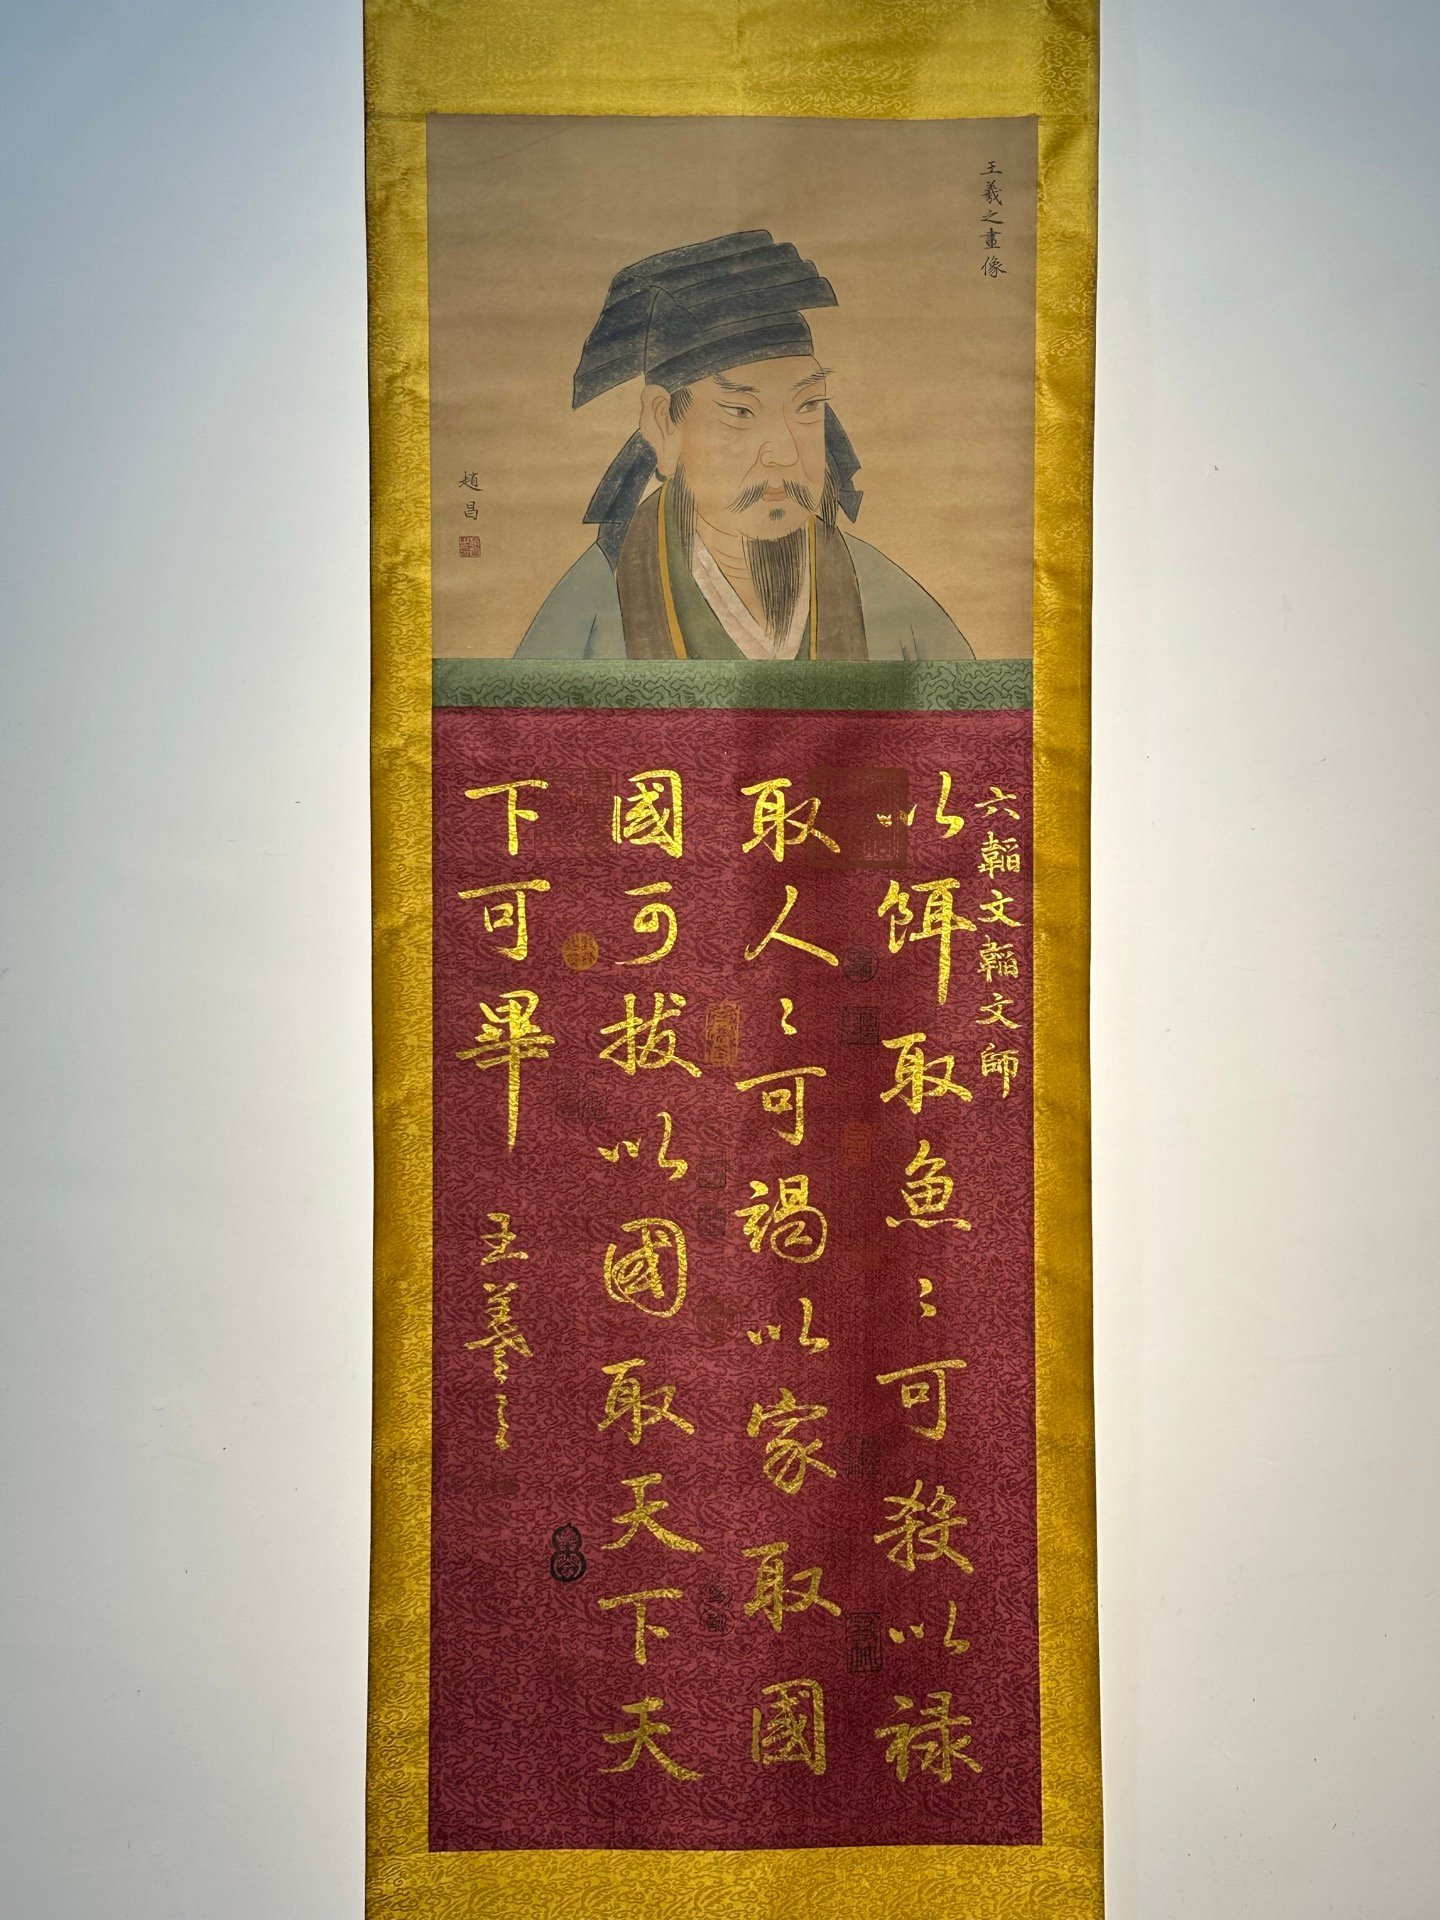 王羲之畫像
趙昌
六韜文韜文師
以餌取魚〻可殺以禄
取人〻可竭以家取國
國可拔以國取天下天
下可畢
王羲之